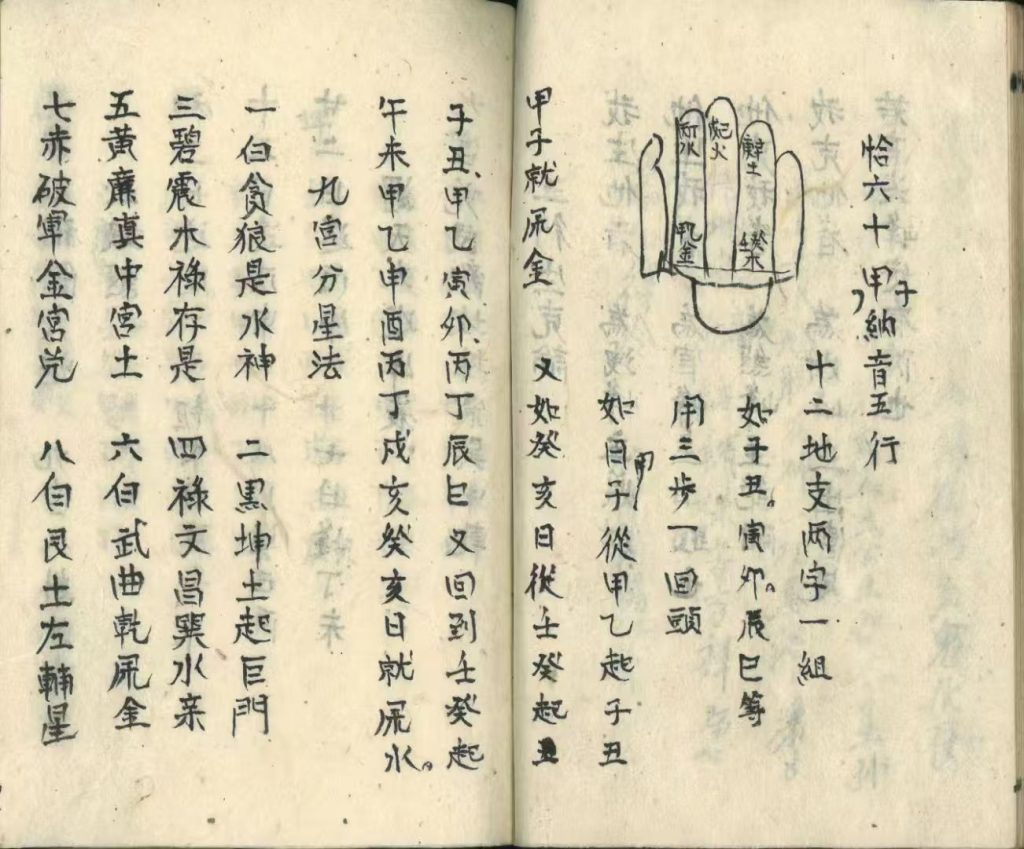 恰六十甲子納音五行
丙丁水
戊己火
庚辛土
甲乙金
壬癸木
十二地支两字一組
如子丑。寅卯。辰巳等
用三步一回頭
如日甲子從甲乙起子丑
甲子就属金 又如癸亥日從壬癸起丑
子丑、甲乙寅卯、丙丁辰巳又回到壬癸起
午未甲乙申酉丙丁戍亥癸亥日就属水。
九宮分星法
一白貪狼是水神 二黑坤土起巨門
三碧震水祿存是 四祿文昌巽水亲
五黄廉真中宮土 六白武曲乾属金
七赤破軍金宮兑 八白艮土左輔星